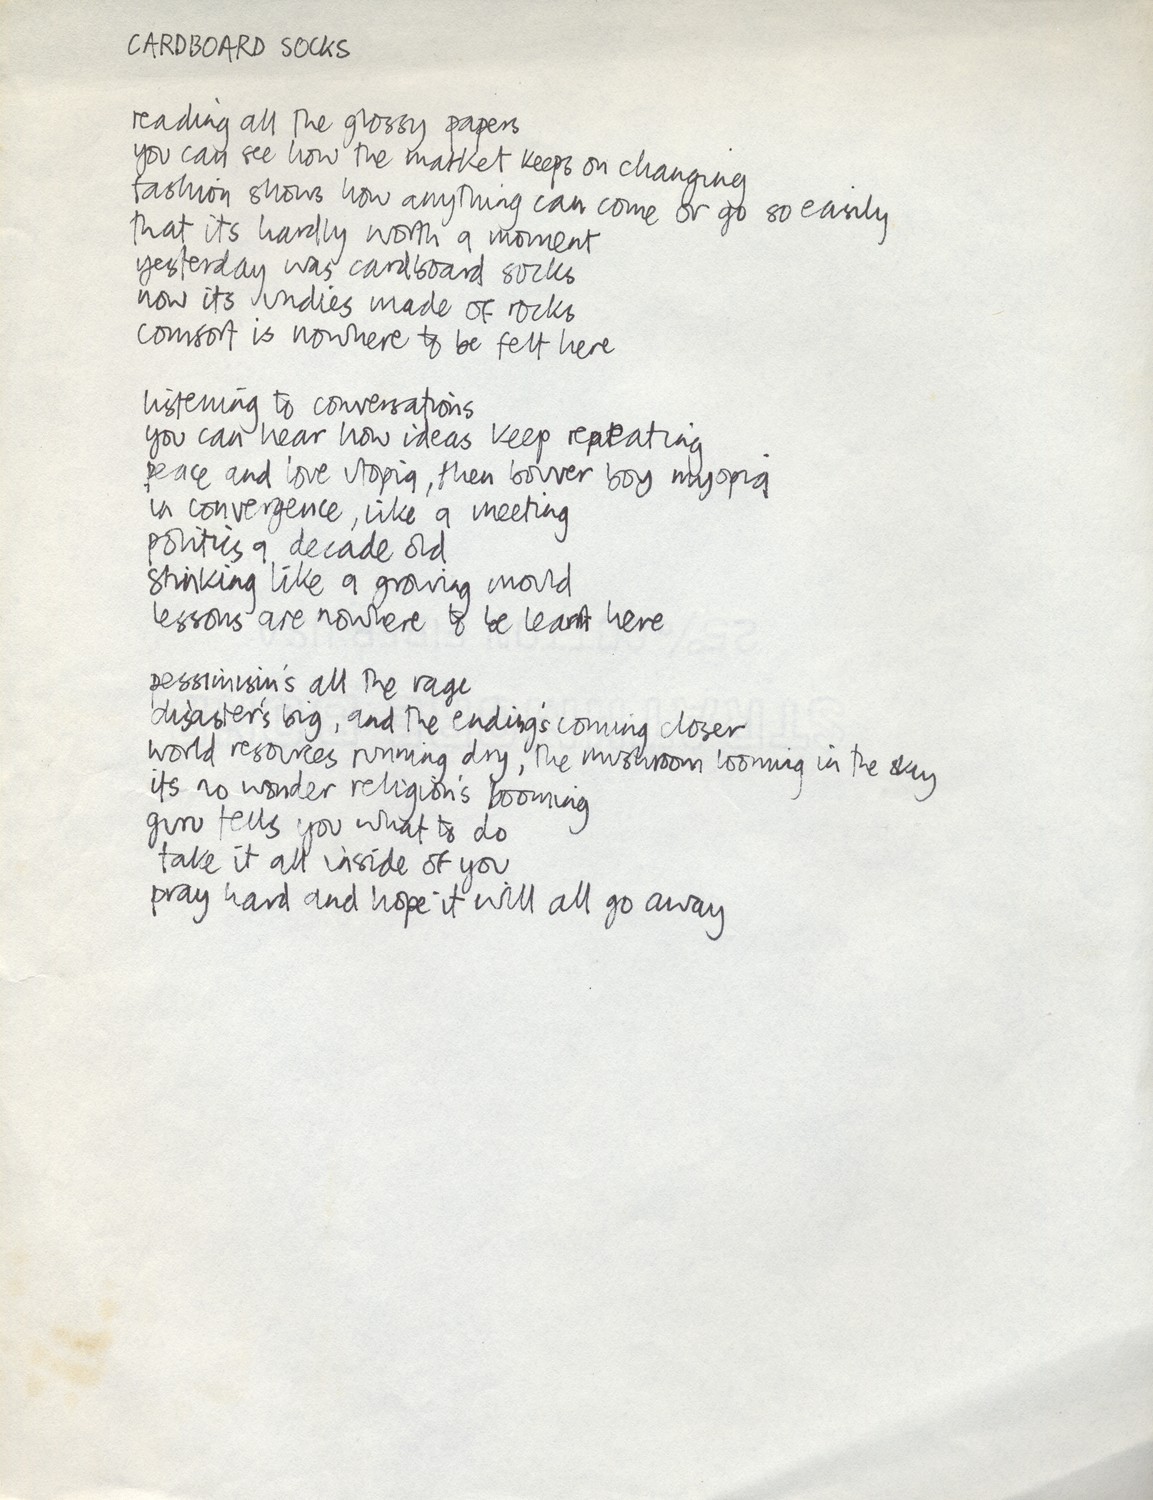 CARDBOARD SOCKS
reading all the glossy papers
you can see how the market keeps on changing
fashion shows how anything can come or go so easily
that its hardly worth a moment
yesterday was cardboard socks
now its undies made of rocks
comfort is nowhere to be felt here
listening to conversations
you can hear how ideas keep repeating
peace and love utopia, then bovver boy myopia
in convergence, like a meeting
politics a decade old
stinking like a growing mould
lessons are nowhere to be learnt here
pessimism's all the rage
disaster's big, and the ending's coming closer
world resources running dry, the mushroom looming in the sky
its no wonder religion's booming
guru tells you what to do
take it all inside of you
pray hard and hope it will all go away